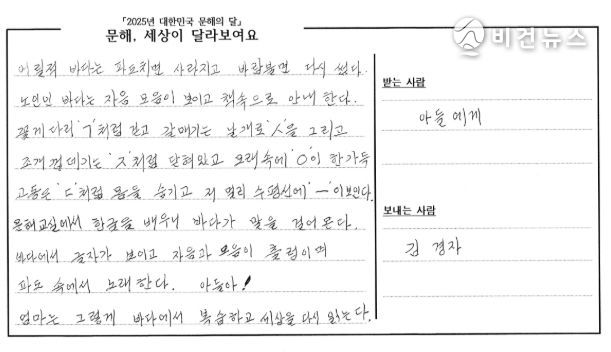 비건뉴스
「2025년 대한민국 문해의 달」
문해, 세상이 달라보여요
어릴적 바다는 파도치면 사라지고 바람불면 다시 썼다.
노인인 바다는 자음 모음이 보이고 책속으로 안내 한다.
꽃게 다리 'ㄱ'처럼 걷고 갈매기는 날개로 '人'을 그리고
조개 껍데기는 'ㅈ'처럼 닫혀있고 모래속에 'ㅇ'이 한가득
고동은 'ㄷ'처럼 몸을 숨기고 저 멀리 수평선에 'ㅡ'이보인다.
문해교실에서 한글을 배우니 바다가 말을 걸어 온다.
바다에서 글자가 보이고 자음과 모음이 출렁이며
파도 속에서 노래한다. 아들아!
엄마는 그렇게 바다에서 복습하고 세상을 다시 읽는다.
받는 사람
아들에게
보내는 사람
김 경자